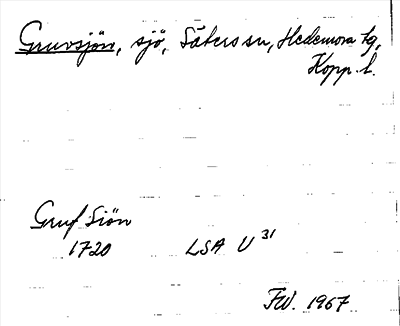 Gruvsjön, sjö, Säters sn, Hedemora tg,
Kopp. l.
Gruf Siön
1720 LSA U 31
FW. 1967